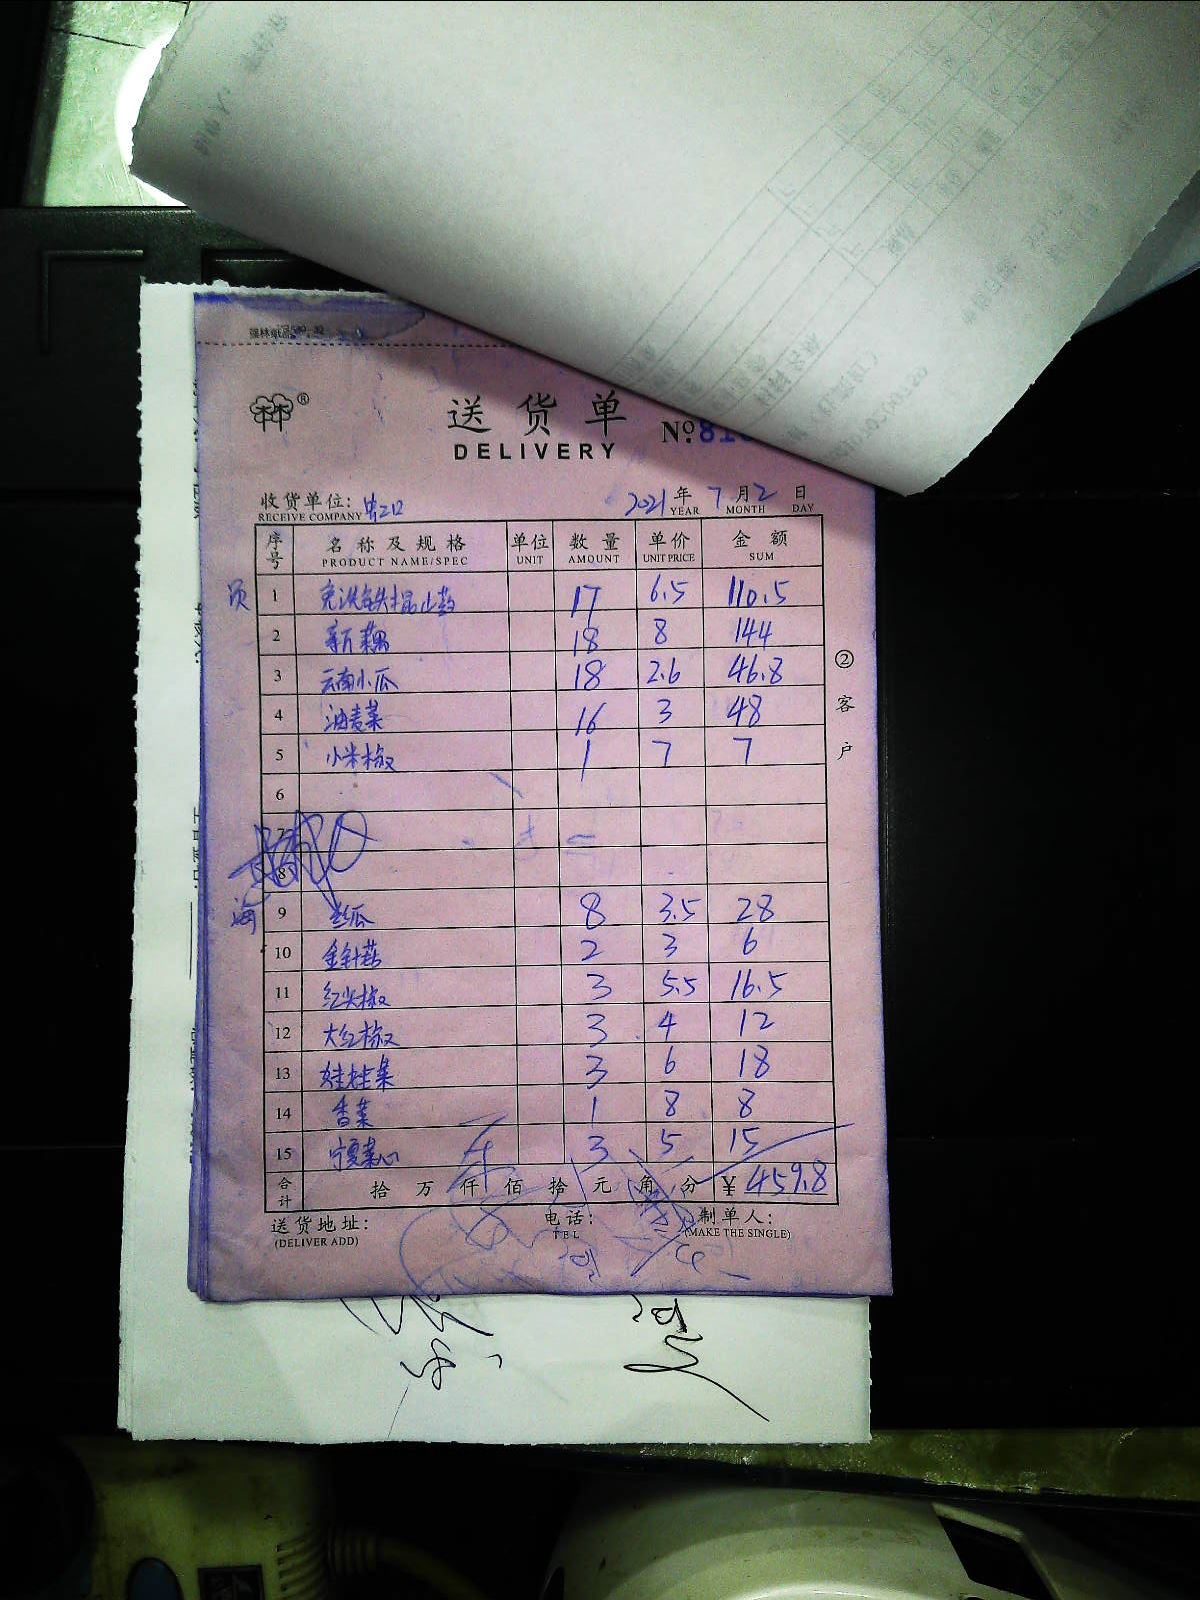 送货单
DELIVERY
№ 81
收货单位: 虹口
RECEIVE COMPANY
2021年7月2日
YEAR MONTH DAY
序号 名称及规格 单位 数量 单价 金额
PRODUCT NAME/SPEC UNIT AMOUNT UNIT PRICE SUM
1 免洗铁棍山药 17 6.5 110.5
2 新藕 18 8 144
3 云南小瓜 18 2.6 46.8
4 油麦菜 16 3 48
5 小米椒 1 7 7
6
7
8
海
9 丝瓜 8 3.5 28
10 金针菇 2 3 6
11 红尖椒 3 5.5 16.5
12 大红椒 3 4 12
13 娃娃菜 3 6 18
14 香菜 1 8 8
15 宁夏菜心 3 5 15
合计 拾万仟佰拾元角分 ¥459.8
送货地址: 电话: 制单人:
(DELIVER ADD) TEL (MAKE THE SINGLE)
②客户